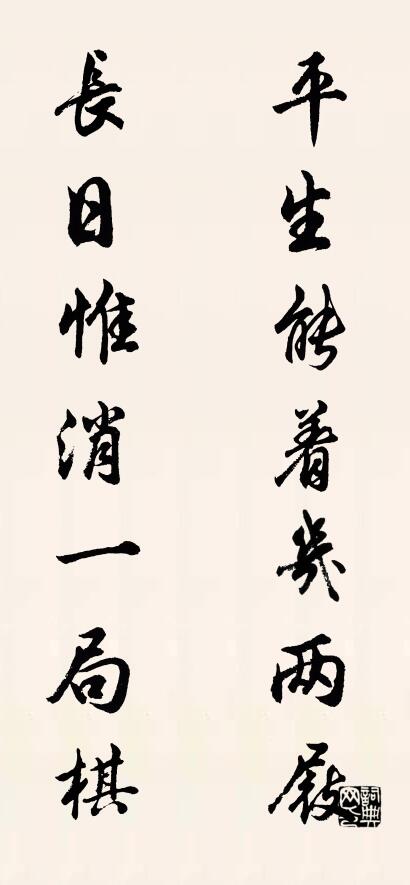 平生能着幾两屐
長日惟消一局棋
詞典网